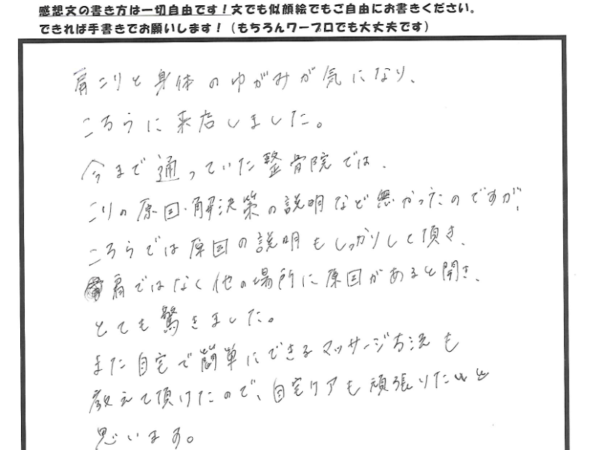 感想文の書き方は一切自由です！文でも似顔絵でもご自由にお書きください。
できれば手書きでお願いします！（もちろんワープロでも大丈夫です）
肩こりと身体のゆがみが気になり、
こちらに来店しました。
今まで通っていた整骨院では、
こりの原因・解決策の説明など無かったのですが、
こちらでは原因の説明もしっかりして頂き、
肩ではなく他の場所に原因があると聞き、
とても驚きました。
また自宅で簡単にできるマッサージ方法も
教えて頂けたので、自宅ケアも頑張りたいと
思います。